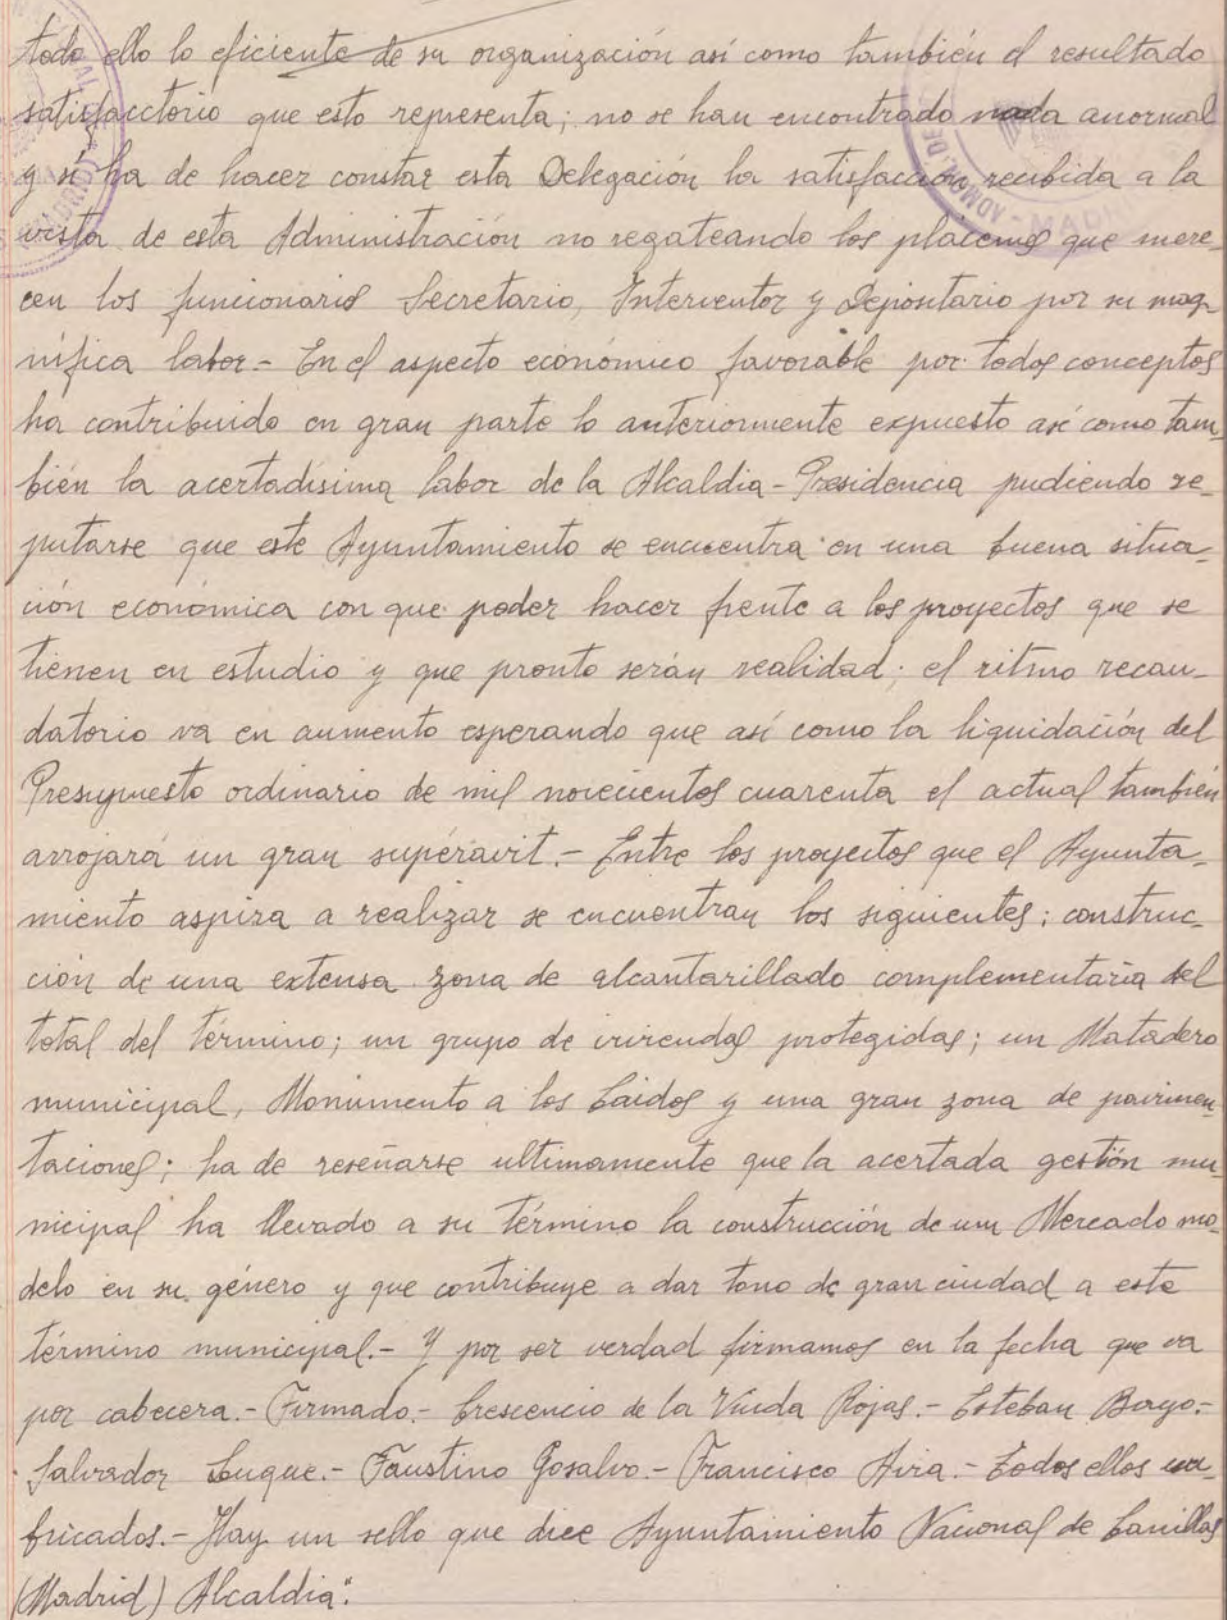 todo ello lo eficiente de su organización así como también el resultado
satisfacctorio que esto representa; no se han encontrado nada anormal
y sí ha de hacer constar esta Delegación la satisfacción recibida a la
vista de esta Administración no regateando los plácemes que mere-
cen los funcionarios Secretario, Interventor y Depositario por su mag-
nífica labor.- En el aspecto económico favorable por todos conceptos
ha contribuido en gran parte lo anteriormente expuesto así como tam-
bién la acertadísima labor de la Alcaldia-Presidencia pudiendo re-
putarse que este Ayuntamiento se encuentra en una buena situa-
ción económica con que poder hacer frente a los proyectos que se
tienen en estudio y que pronto serán realidad; el ritmo recau-
datorio va en aumento esperando que así como la liquidación del
Presupuesto ordinario de mil novecientos cuarenta el actual también
arrojará un gran superávit.- Entre los proyectos que el Ayunta-
miento aspira a realizar se encuentran los siguientes: construc-
ción de una extensa zona de alcantarillado complementaria del
total del término; un grupo de viviendas protegidas; un Matadero
municipal, Monumento a los Caidos y una gran zona de pavimen-
taciones; ha de reseñarse ultimamente que la acertada gestión mu-
nicipal ha llevado a su término la construcción de un Mercado mo-
delo en su género y que contribuye a dar tono de gran ciudad a este
término municipal.- Y por ser verdad firmamos en la fecha que va
por cabecera.- Firmado.- Crescencio de la Viuda Rojas.- Esteban Bayo.-
Salvador Luque.- Faustino Gosalvo.- Francisco Avia.- Todos ellos
bricados.- Hay un sello que dice Ayuntamiento Nacional de Canillas
(Madrid) Alcaldia".
ADMON. DE
MADRID